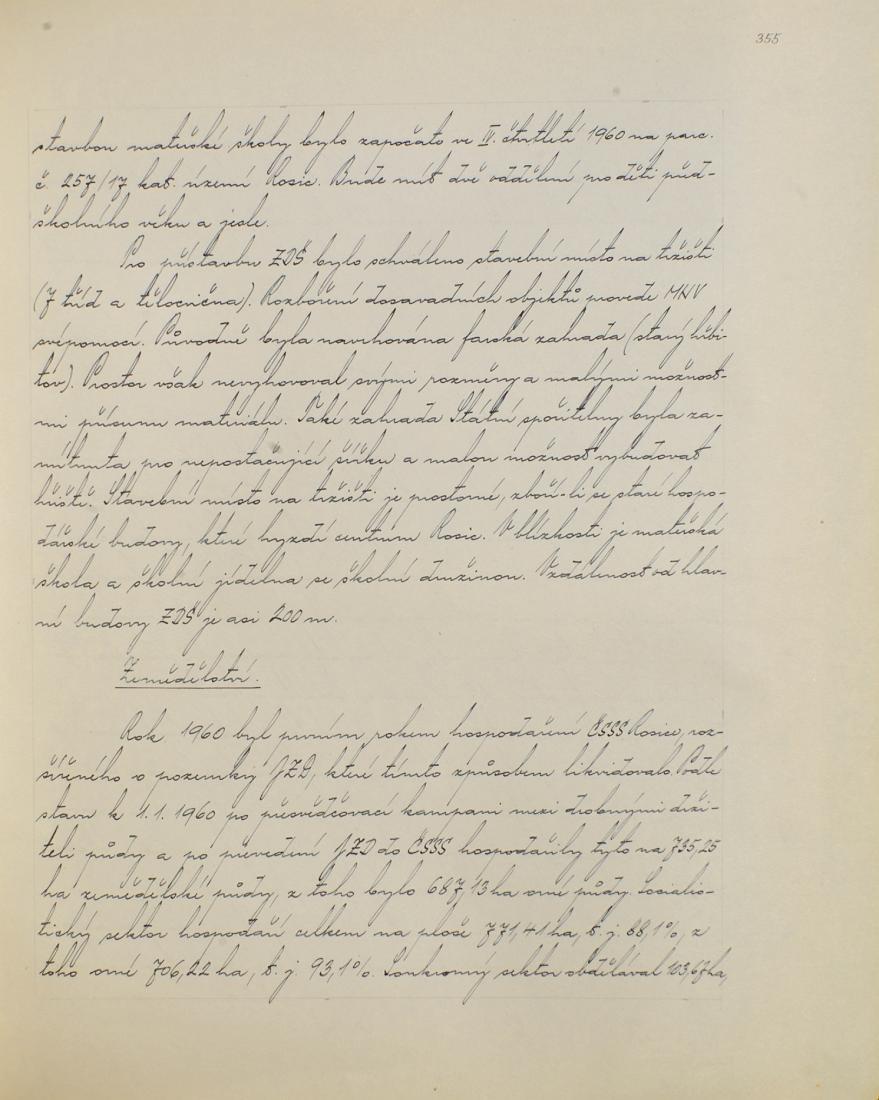 355
stavbou mateřské školy bylo započato ve IV. čtvrtletí 1960 na parc.
č. 257/17 kat. území Rosic. Bude mít dvě oddělení pro děti před-
školního věku a jesle.
Pro přístavbu ZDŠ bylo schváleno stavební místo na tržišti
(7 tříd a tělocvična). Rozboření dosavadních objektů provede MNV
svépomocí. Původně byla navrhována farská zahrada (starý hřbi-
tov). Prostor však nevyhovoval svými rozměry a malými možnost-
mi přísunu materiálu. Také zahrada Státní spořitelny byla za-
mítnuta pro nepostačující šířku a malou možnost vybudovat
hřiště. Stavební místo na tržišti je prostorné, zboří-li se staré hospo-
dářské budovy, které hyzdí centrum Rosic. V blízkosti je mateřská
škola a školní jídelna se školní družinou. Vzdálenost od hlav-
ní budovy ZDŠ je asi 200 m.
Zemědělství.
Rok 1960 byl prvním rokem hospodaření ČSSS Rosice, roz-
šířeného o pozemky JZD, které tímto způsobem likvidovalo. Podle
stavu k 1. 1. 1960 po přesvědčovací kampani mezi drobnými drži-
teli půdy a po převedení JZD do ČSSS hospodařily tyto na 735,25
ha zemědělské půdy, z toho bylo 687,13 ha orné půdy. Socialis-
tický sektor hospodaří celkem na ploše 771,41 ha, t. j. 88,1%, z
toho orné 706,22 ha, t. j. 93,1%. Soukromý sektor obdělával 103,67 ha,